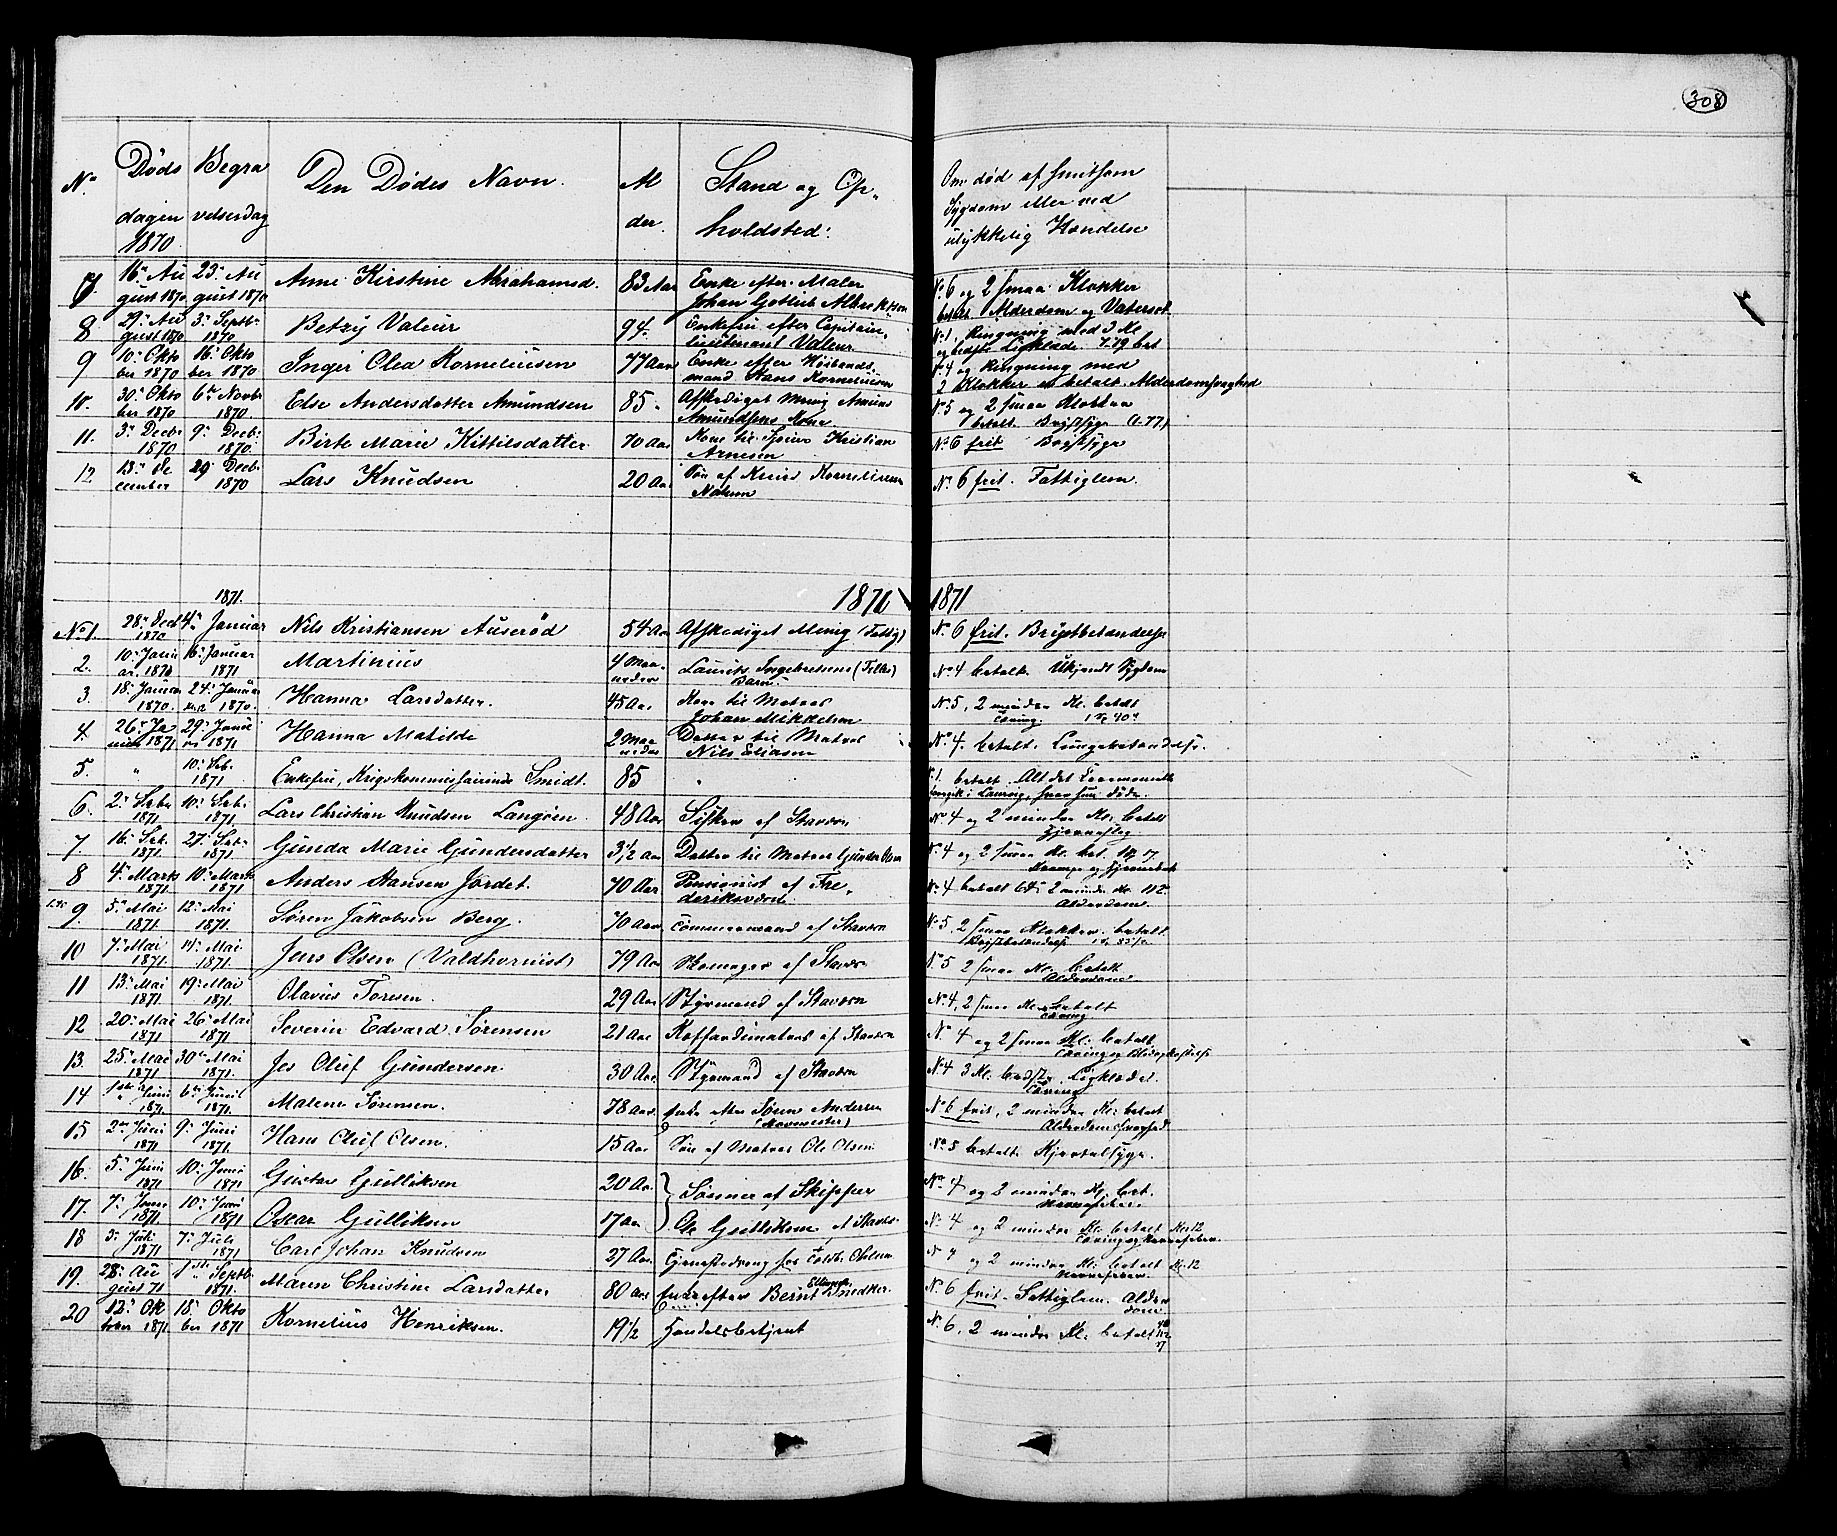 308
No Dødsdagen 1870 Begravelsesdag Den Døde's Navn. Alder. Stand og Opholdsted. Om død af smitsom Sygdom eller ved ulykkelig Hændelse
7 16de August 1870 23de August 1870 Anne Kirstine Abrahamsd. 83 Aar Enke efter Maler Johan Gotlieb No 6 og 2 smaa Klokker betalt Alderdom og Vatersot
8 29de August 1870 3de Septbr 1870 Betzy Valeur 94. Enkefru efter Capitain-lieutenant Valeur No 1. Ringning med 3 Kl og bedste Ligklæde
9 10de Oktober 1870 16de Oktober 1870 Inger Olea Korneliusen 77 Aar Enke efter Huusbandsmand Hans Korneliusen No 4 og Ringning med 2 Klokker er betalt. Alderdomssvaghed
10. 30de Oktober 1870 6te Novbr 1870. Else Andersdatter Amundsen 85. Afskediget Menig Amund Amundsens Kone No 5 og 2 smaa Klokker betalt Brystsyge
11. 3de Decbr 1870 9de Decbr 1870. Birte Marie Kittilsdatter 70 Aar Kone til Kristian Arnesen No 6 frit Brystsyge
12 13de December 29 Decbr 1870 Lars Knudsen 20 Aar Søn af Knud Korneliusen No 6 frit. Fattiglem.
1871.
1870 1871
No 1. 28de Decb 1870 4de Januar Nils Kristiansen Auserød 54 Aar Afskediget Menig (Fattig) No 6 frit. Brystbetændelse
2. 10de Januar. 1870 16de Januar 1871 Martinius 4 Maaneder Laurits Ingebretsens Barn No 4 betalt. Ukjendt Sygdom
3. 18de Januar 1870. 24de Januar 1870. Hanna Larsdatter. 45 Aar Kone til Matros Johan Mikkelsen No 5, 2 mindre Kl. betalt Tæring.
4. 26de Januar 1871 29de Januar 1871 Hanna Matilde 2 Maaneder Datter til Matros Nils Eliasen No 4. betalt. Lungebetændelse.
5. " 10de Feb. 1871 Enkefru, Krigskommissairinde Smidt. 85 " No 1. betalt. Alt det foregik i Laurvig, hvor hun døde.
6. 2de Febr 1871 10de Febr. 1871 Lars Christian Knudsen Langøen 48 Aar Fisker af Stavern No 4 og 2 mindre Kl. betalt
7. 16de Feb. 1871. 27de Febr 1871. Gunda Marie Gundersdatter 3½ Aar Datter til Matros Gunder No 4 og 2 smaa Kl. bet.
8 4de Marts 1871 10de Marts 1871 Anders Hansen Jordet. 70 Aar Pensionist af Frederiksværn. No 4 betalt 2 mindre Kl. Alderdom.
9. 5te Mai 1871 12te Mai 1871. Søren Jakobsen Berg. 70 Aar Tømmermand af Stavern No 5, 2 smaa Klokker. betalt. Brystbetændelse
10 7de Mai 1871. Mai 1871. Jens Olsen (Valdhornist) 79 Aar Skomager af Stavern No 5 2 smaa Kl. betalt Alderdom
11 13de Mai 1871. 19de Mai 1871. Olavus Toresen. 29 Aar Styrmand af Stavern No 4, 2 smaa Kl. betalt Tæring
12 20de Mai 1871 26de Mai 1871. Severin Edvard Sørensen 21 Aar Koffardimatros af Stavern No 4 og 2 smaa Kl. betalt Tæring og Blodopkastelse
13. 25de Mai 1871. 30te Mai 1871. Jes Oluf Gundersen 30 Aar. Styrmand af Stavern No 4 3 Kl. bedste Ligklædet. Tæring
14 1ste Juni 1871 6te Juni 1871. Malene Sørensen. 78 Aar. Enke efter Søren Andersen No 6 frit, 2 mindre Kl. betalt Alderdomssvaghed.
15 2den Juni 1871 9de Juni 1871. Hans Oluf Olsen. 15 Aar Søn af Matros Ole Olsen No 5 betalt. Kjertelsyge.
16. 5te Juni 1871 10de Juni 1871. Gustav Gulliksen 20 Aar. Sønner af Skipper No 4 og 2 mindre Kl. bet. Nervefeber.
17. 7de Juni 1871. 10de Juni 1871 Oscar Gulliksen 17 Aar Ole Gulliksen af Stavern No 4 og 2 mindre Kl. betalt Tæring og Nervefeber.
18 3de Juli 1871 7de Juli 1871 Carl Johan Knudsen 27 Aar. No 4 og 2 mindre Kl. betalt Nervefeber.
19. 28de August 71 1ste Septbr 1871. Maren Christine Larsdatter 80 Aar Enke efter Bernt Snedker No 6 frit. Fattiglem. Alderdom.
20 12te Oktober 1871. 18de Oktober 1871 Kornelius Henriksen. 19½ Handelsbetjent No 6, 2 mindre Kl. betalt